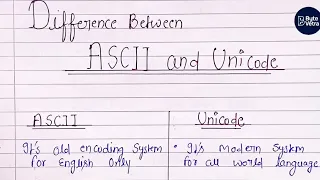 Difference Between
Byte
Vetra
ASCII and Unicode
ASCII
Unicode
It's Old encoding System
for English Only
• It's Modern System
for all world language